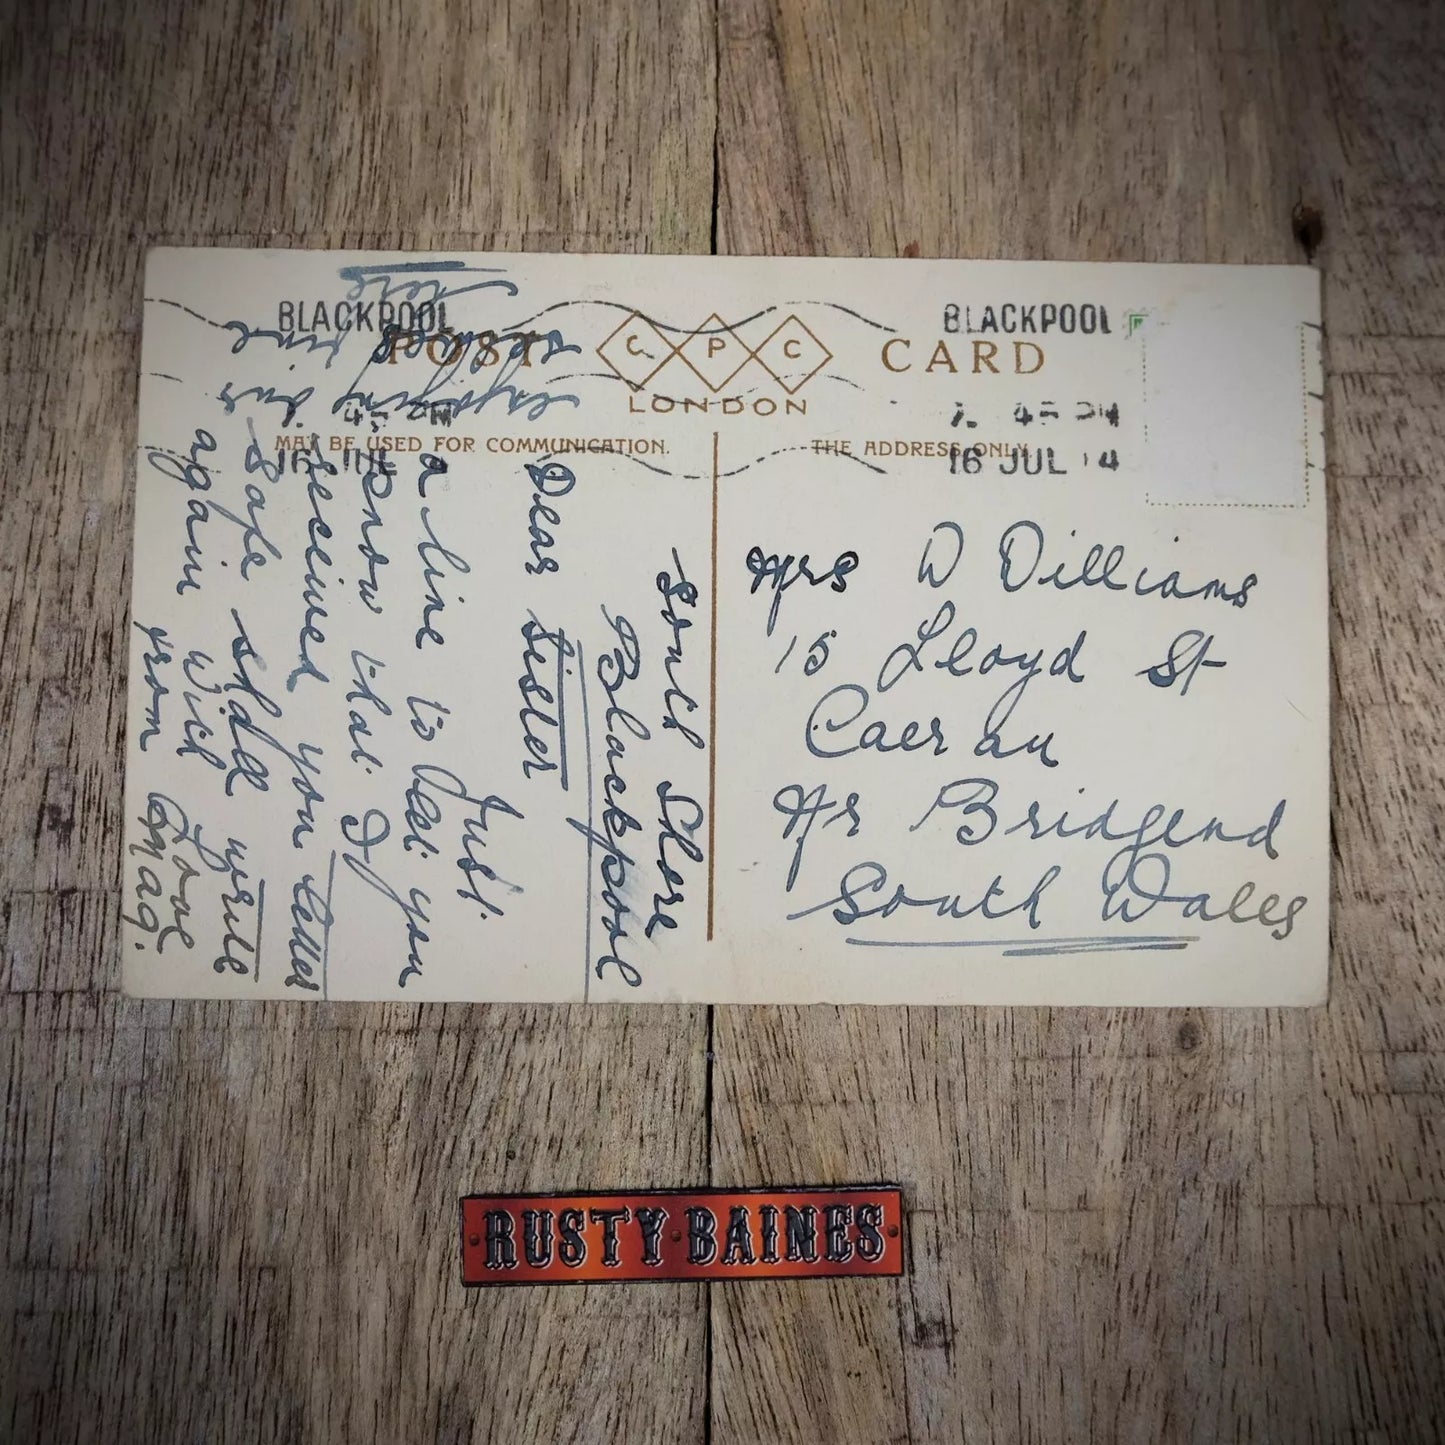 BLACKPOOL
45 PM
16 JUL
BLACKPOOL
45 PM
16 JUL 4
POST CARD
C P C
LONDON
MAY BE USED FOR COMMUNICATION.
THE ADDRESS ONLY.
South Shore
Blackpool
Dear Sister
Just
a line to let you
know that I
received you letter
safe shall write
again with love
from Mag.
enjoying
time
here
Mrs W Williams
15 Lloyd St
Caerau
Nr Bridgend
South Wales
RUSTY·BAINES